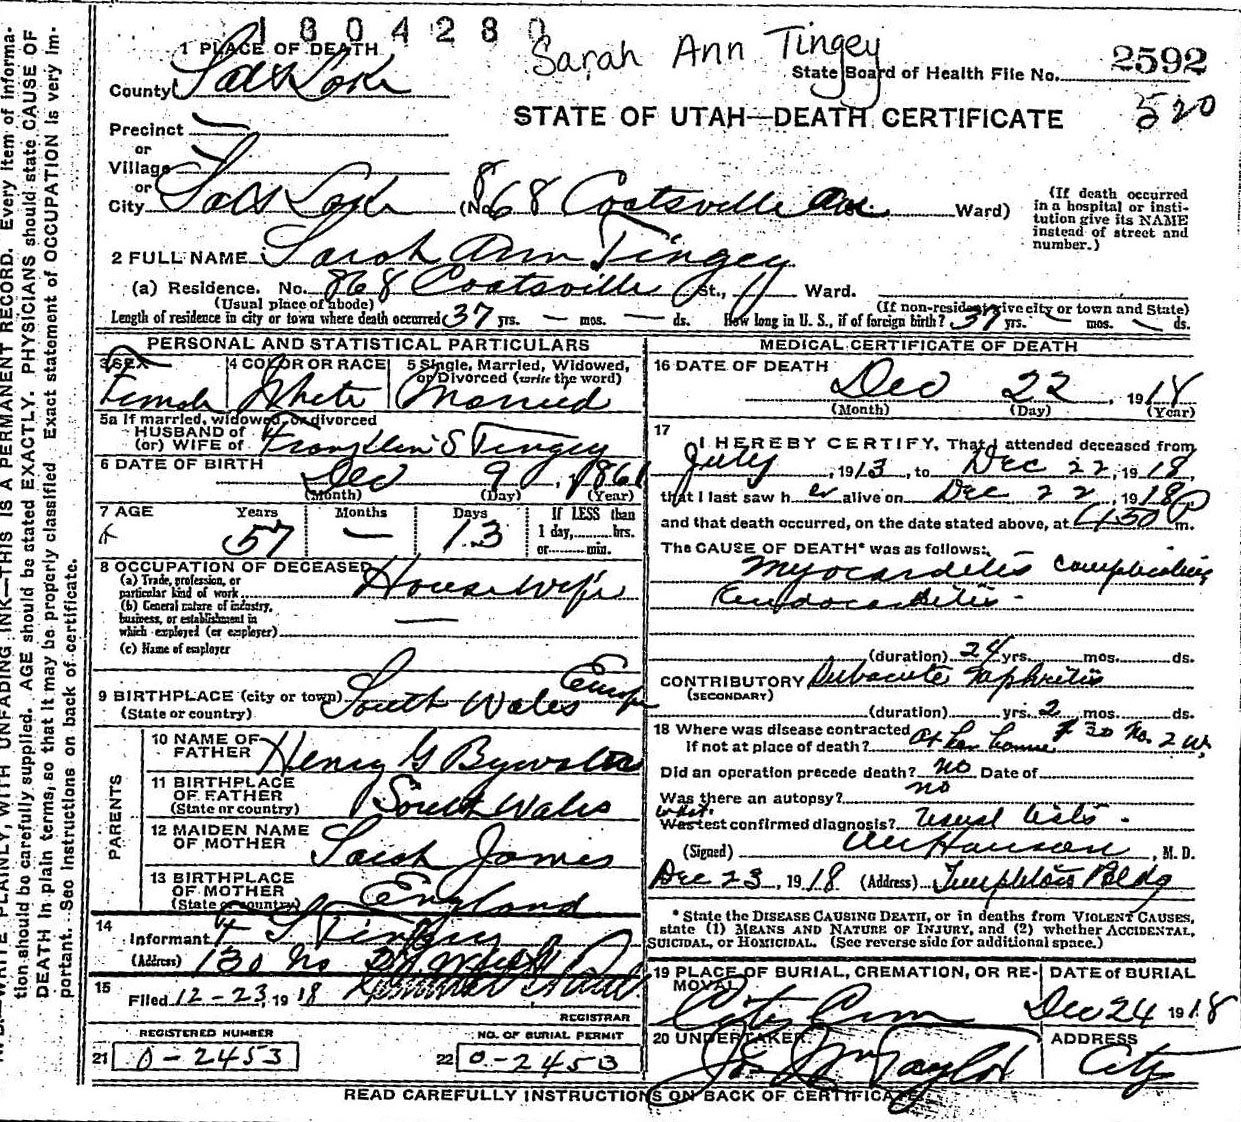 1804280
Sarah Ann Tingey
State Board of Health File No. 2592
520
STATE OF UTAH—DEATH CERTIFICATE
1 PLACE OF DEATH
County Salt Lake
Precinct —
or
Village —
or
City Salt Lake (No. 868 Coatsville Ave. Ward)
(If death occurred in a hospital or insti-
tution give its NAME
instead of street and
number.)
2 FULL NAME Sarah Ann Tingey
(a) Residence. No. 868 Coatsville St., Ward.
(Usual place of abode) (If non-resident give city or town and State)
Length of residence in city or town where death occurred 37 yrs. — mos. — ds. How long in U. S., if of foreign birth? 37 yrs. — mos. — ds.
PERSONAL AND STATISTICAL PARTICULARS
3 SEX
Female
4 COLOR OR RACE
White
5 Single, Married, Widowed,
or Divorced (write the word)
Married
5a If married, widowed, or divorced
HUSBAND of
(or) WIFE of Franklin S Tingey
6 DATE OF BIRTH
Dec 9, 1861
(Month) (Day) (Year)
7 AGE Years Months Days If LESS than
57 — 13 1 day, hrs.
or min.
8 OCCUPATION OF DECEASED
(a) Trade, profession, or
particular kind of work Housewife
(b) General nature of industry,
business, or establishment in
which employed (or employer) —
(c) Name of employer
9 BIRTHPLACE (city or town) South Wales Europe
(State or country)
PARENTS
10 NAME OF
FATHER Henry G Bywater
11 BIRTHPLACE
OF FATHER
(State or country) South Wales
12 MAIDEN NAME
OF MOTHER Sarah James
13 BIRTHPLACE
OF MOTHER
(State or country) England
14
Informant F S Tingey
(Address) 130 No
15
Filed 12-23, 1918
REGISTRAR
REGISTERED NUMBER
21 0-2453
NO. OF BURIAL PERMIT
22 0-2453
MEDICAL CERTIFICATE OF DEATH
16 DATE OF DEATH
Dec 22, 1918
(Month) (Day) (Year)
17
I HEREBY CERTIFY, That I attended deceased from
July, 1913, to Dec 22, 1918
that I last saw her alive on Dec 22, 1918
and that death occurred, on the date stated above, at 450 P m.
The CAUSE OF DEATH* was as follows:
Myocarditis complicating
Endocarditis.
(duration) 24 yrs. mos. ds.
CONTRIBUTORY Subacute Nephritis
(SECONDARY)
(duration) yrs. 2 mos. ds.
18 Where was disease contracted
if not at place of death? At her home # 30 No. 2 W.
Did an operation precede death? no Date of
Was there an autopsy? no
What test confirmed diagnosis? Usual tests.
(Signed) Hanson, M. D.
Dec 23, 1918 (Address) Templeton Bldg
* State the DISEASE CAUSING DEATH, or in deaths from VIOLENT CAUSES,
state (1) MEANS AND NATURE OF INJURY, and (2) whether ACCIDENTAL,
SUICIDAL, or HOMICIDAL. (See reverse side for additional space.)
19 PLACE OF BURIAL, CREMATION, OR RE-
MOVAL
City Cem
DATE OF BURIAL
Dec 24 1918
20 UNDERTAKER
Jos Wm Taylor
ADDRESS
City
READ CAREFULLY INSTRUCTIONS ON BACK OF CERTIFICATE
WRITE PLAINLY, WITH UNFADING INK—THIS IS A PERMANENT RECORD. Every item of informa-
tion should be carefully supplied. AGE should be stated EXACTLY. PHYSICIANS should state CAUSE OF
DEATH in plain terms, so that it may be properly classified. Exact statement of OCCUPATION is very im-
portant. See instructions on back of certificate.